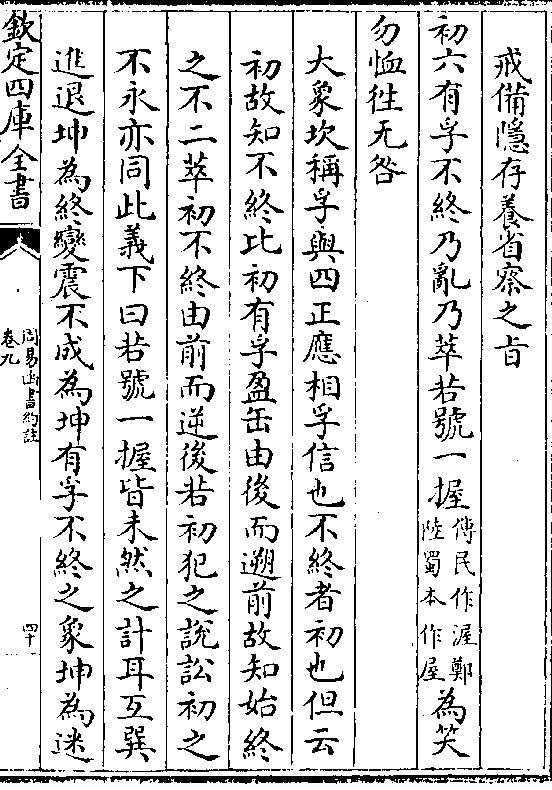 戒備隠存養省察之㫖
初六有孚不終乃亂乃萃若號一握傳氏作渥鄭陸蜀本作屋為笑
勿恤徃无咎
大象坎稱孚與四正應相孚信也不終者初也但云
初故知不終比初有孚盈缶由後而遡前故知始終
之不二萃初不終由前而逆後若初犯之說訟初之
不永亦同此義下曰若號一握皆未然之計耳互巽
進退坤為終變震不成為坤有孚不終之象坤為迷
欽定四庫全書
周易函書約註
卷九
四十